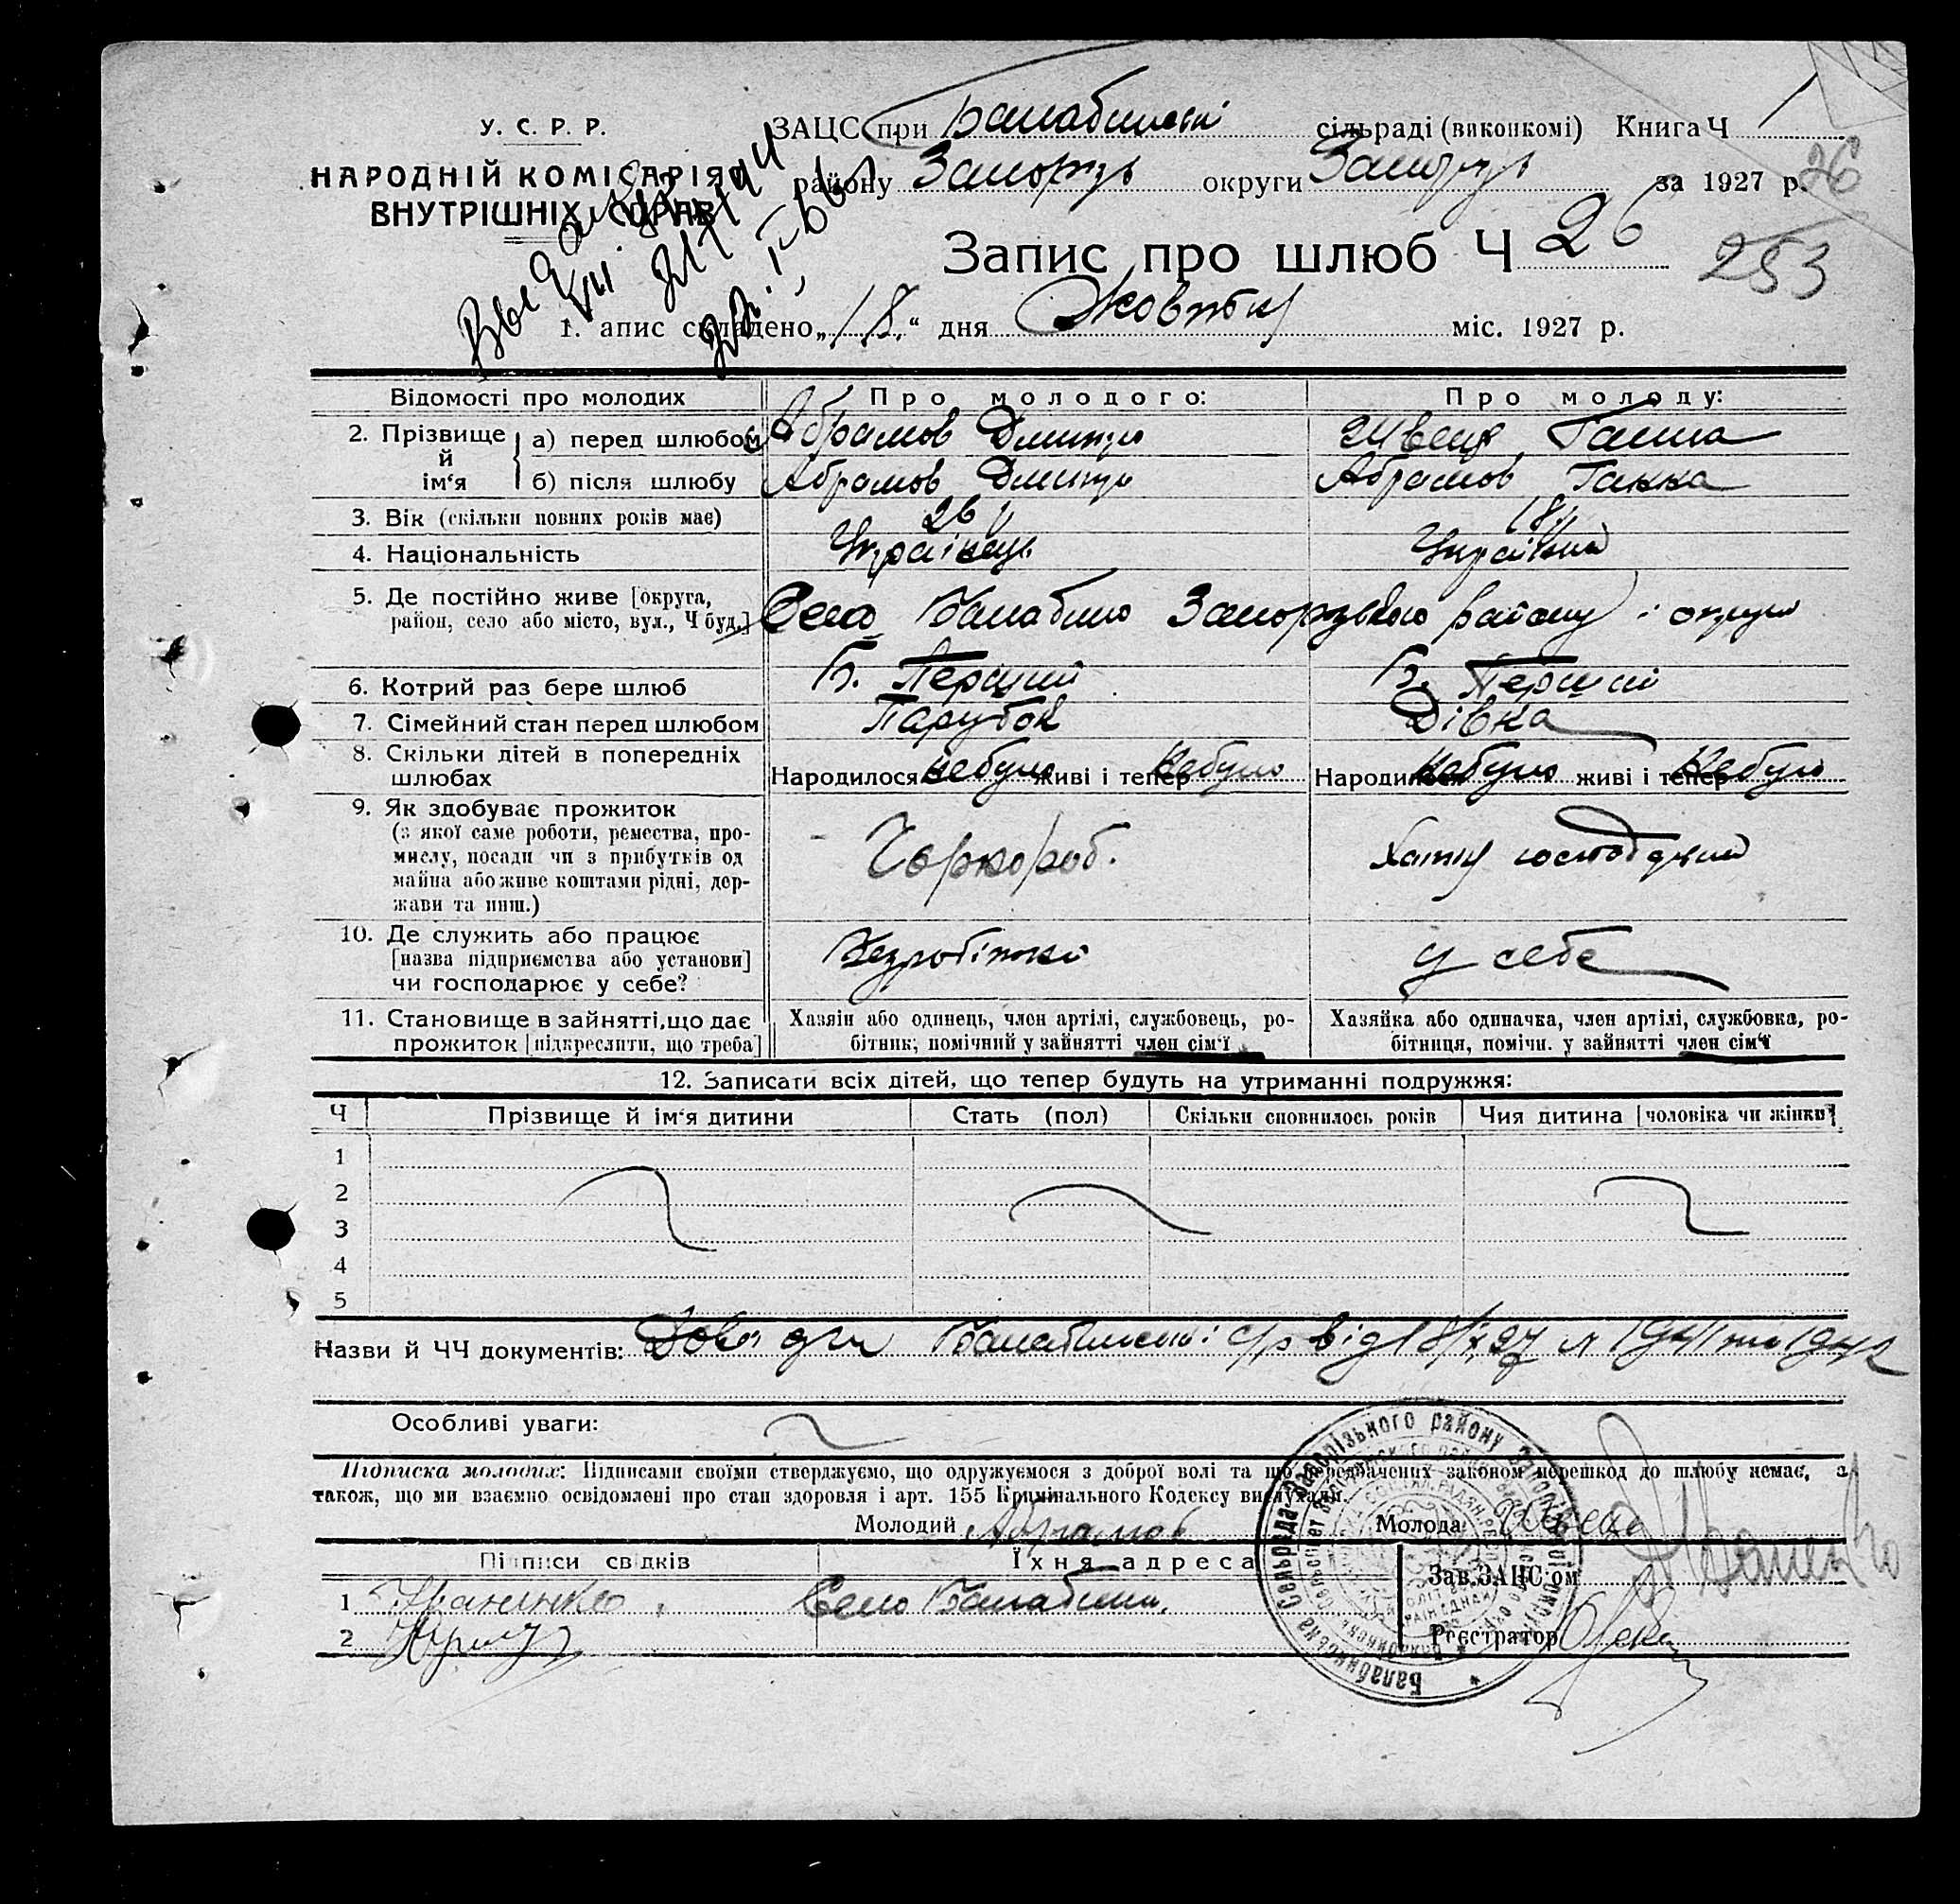 У. С. Р. Р.
НАРОДНІЙ КОМІСАРІЯТ
ВНУТРІШНІХ СПРАВ
ЗАЦС при Балабинській сільраді (виконкомі) Книга Ч 1
району Запоріз округи Запоріз за 1927 р.
26
Запис про шлюб Ч 26
253
1. апис складено „18“ дня Жовтня міс. 1927 р.
Відомості про молодих Про молодого: Про молоду:
2. Прізвище й ім‘я
а) перед шлюбом Абрамов Дмитро Швець Ганна
б) після шлюбу Абрамов Дмитро Абрамов Ганна
3. Вік (скільки повних років має) 26 18
4. Національність Українець Українка
5. Де постійно живе [округа, район, село або місто, вул., Ч буд.] Село Балабино Запорізького району і округи
6. Котрий раз бере шлюб Б. Перший Б. Перший
7. Сімейний стан перед шлюбом Парубок Дівка
8. Скільки дітей в попередніх шлюбах
Народилося небуло живі і тепер небуло Народилося небуло живі і тепер небуло
9. Як здобуває прожиток
(з якої саме роботи, ремества, про-
мислу, посади чи з прибутків од
майна або живе коштами рідні, дер-
жави та инш.)
Чорнороб. Хатня
10. Де служить або працює
[назва підприємства або установи]
чи господарює у себе?
Безробітній у себе
11. Становище в зайнятті, що дає
прожиток [підкреслити, що треба]
Хазяїн або одинець, член артілі, службовець, ро-
бітник; помічний у зайнятті член сім‘ї
Хазяйка або одиначка, член артілі, службовка, ро-
бітниця, помічн. у зайнятті член сім‘ї
12. Записати всіх дітей, що тепер будуть на утриманні подружжя:
Ч Прізвище й ім‘я дитини Стать (пол) Скільки сповнилось років Чия дитина [чоловіка чи жінки]
1
2
3
4
5
Назви й ЧЧ документів: Балабинської с/р від 18/X 27
Особливі уваги:
Підписка молодих: Підписами своїми стверджуємо, що одружуємося з доброї волі та що передбачених законом перешкод до шлюбу немає, а
також, що ми взаємно освідомлені про стан здоровля і арт. 155 Кримінального Кодексу вислухали.
Молодий Абрамов Молода Швець
Підписи свідків Їхня адреса Зав. ЗАЦС‘ом
1 Село Балабине.
2 Реєстратор
Балабинська Сельрада Запорізького району Запорізької округи